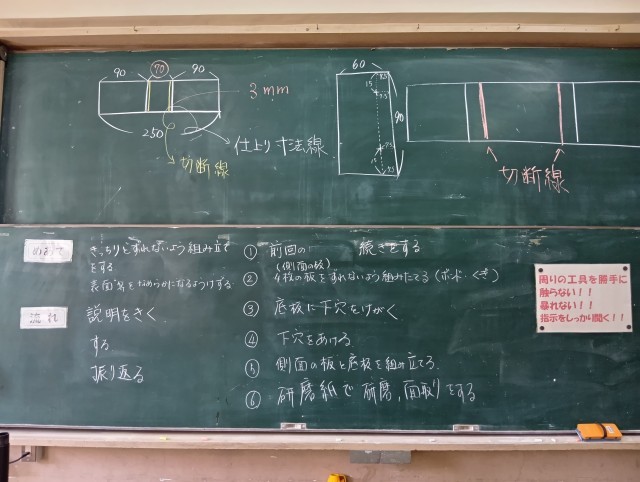 90 70 90
3mm
250
仕上り寸法線
切断線
60
90
15
7.5
7.5
15
7.5
切断線
めあて
きっちりとずれないよう組み立て
をする
表面等をなめらかになるようけずる
流れ
説明をきく
する
振り返る
① 前回の 続きをする
(側面の板)
② 4枚の板をずれないよう組みたてる(ボンド・くぎ)
③ 底板に下穴をけがく
④ 下穴をあける
⑤ 側面の板と底板を組み立てる
⑥ 研磨紙で研磨、面取りをする
周りの工具を勝手に
触らない!!
暴れない!!
指示をしっかり聞く!!